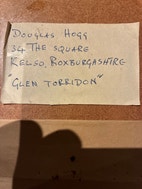 DOUGLAS HOGG
34 THE SQUARE
KELSO, ROXBURGHSHIRE
"GLEN TORRIDON"